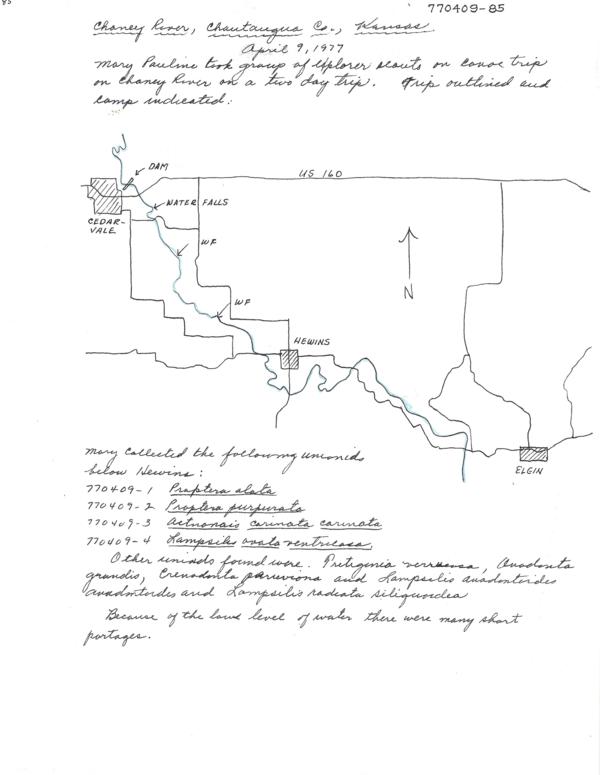 85
770409-85
Chaney River, Chautauqua Co., Kansas
April 9, 1977
Mary Pauline took group of Explorer scouts on canoe trip
on Chaney River on a two day trip. Trip outlined and
camp indicated:
DAM
US 160
WATER FALLS
CEDAR-
VALE
WF
N
WF
HEWINS
ELGIN
Mary collected the following unionids
below Hewins:
770409-1 Proptera alata
770409-2 Proptera purpurata
770409-3 Actnonais carinata carinata
770409-4 Lampsilis ovata ventricosa.
Other unioids found were. verrucosa, Anodonta
grandis, and Lampsilis anadontoides
anadontoides and Lampsilis radiata siliquoidea
Because of the low level of water there were many short
portages.